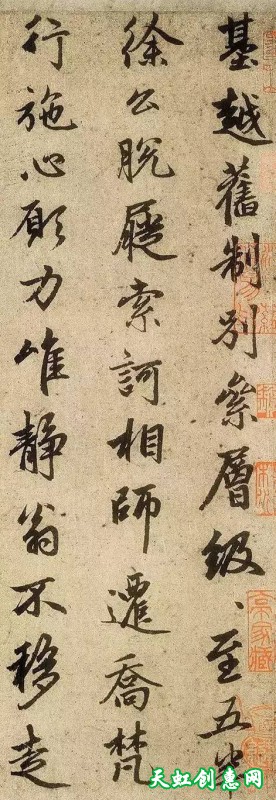 基越舊制別絫層級、至五
徐公脫屣索訶相師遷喬梵
行施心願力唯靜翁不移走
天虹创惠网